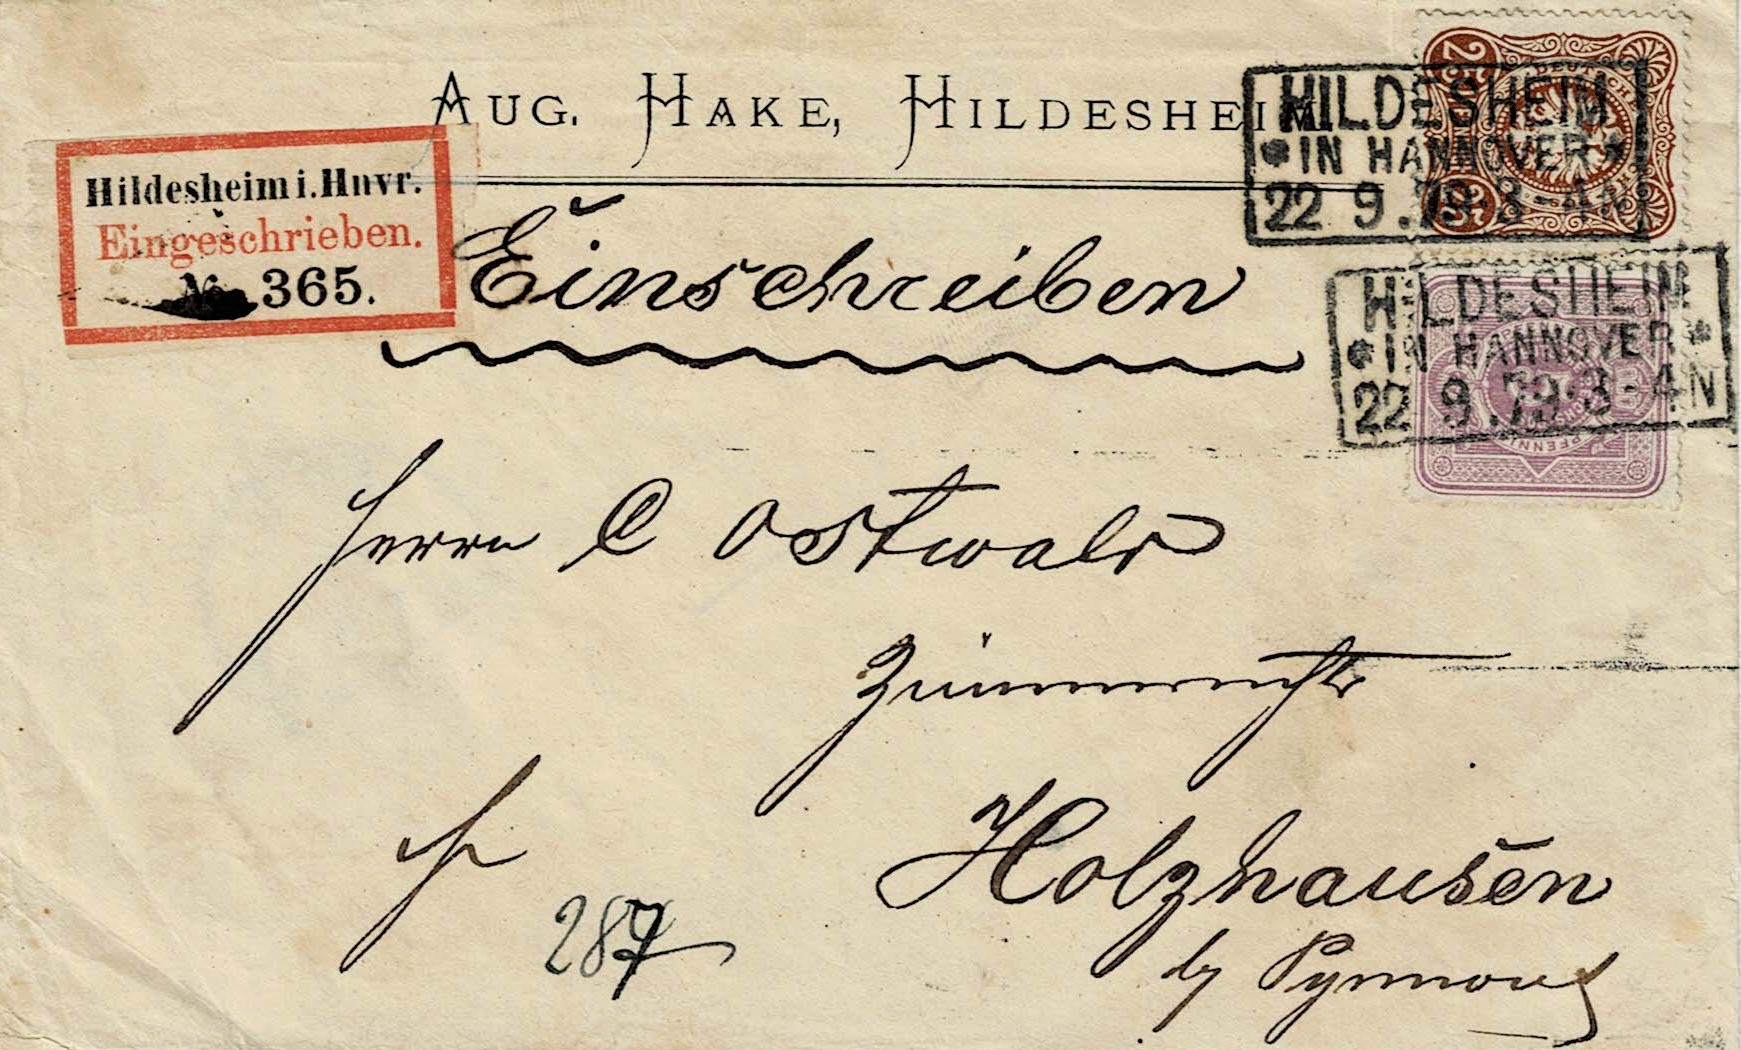 AUG. HAKE, HILDESHEIM
Hildesheim i. Hnvr.
Eingeschrieben.
№ 365.
Einschreiben
HILDESHEIM
* IN HANNOVER *
22 9.79.3-4N
25
DEUTSCHE
25
HILDESHEIM
* IN HANNOVER *
22 9.79.3-4N
PFENNIG
Herrn C Ostwald
Holzhausen
by Pyrmont
fr
287